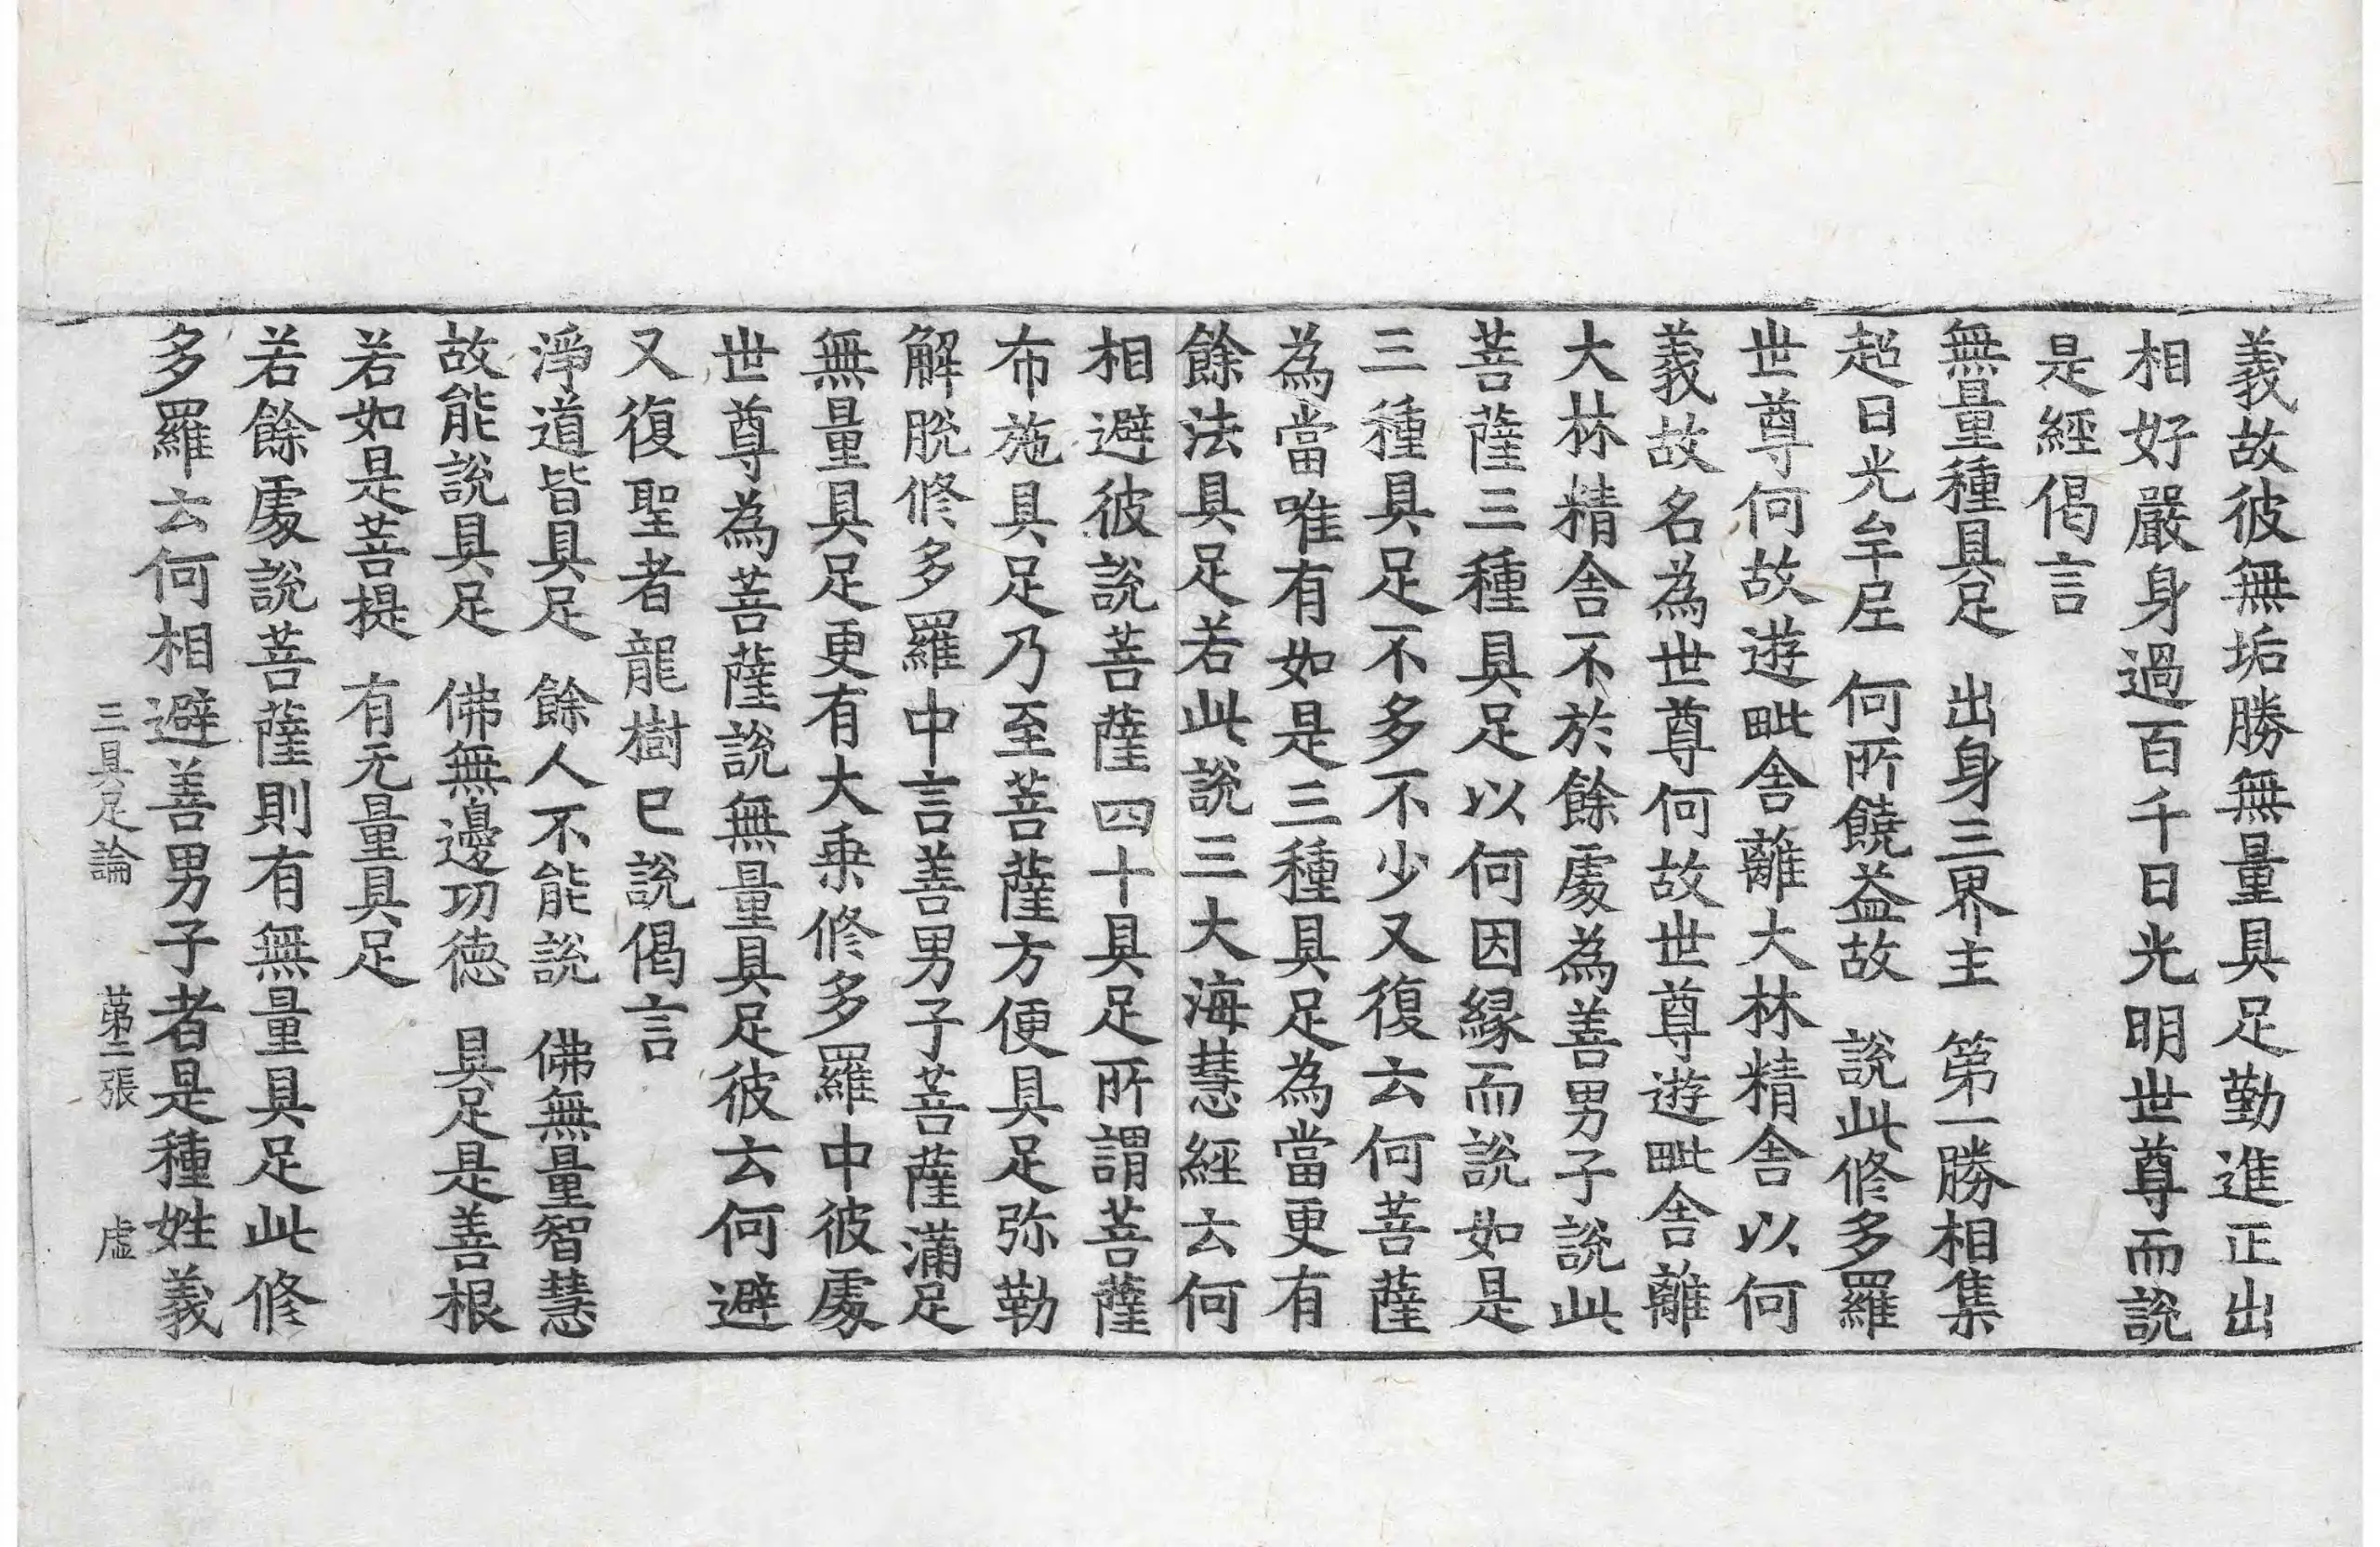 義故彼無垢勝無量具足勤進正出
相好嚴身過百千日光明世尊而說
是經偈言
無量種具足　出身三界主　第一勝相集
超日光牟尼　何所饒益故　說此修多羅
世尊何故遊毗舍離大林精舍以何
義故名為世尊何故世尊遊毗舍離
大林精舍不於餘處為善男子說此
菩薩三種具足以何因緣而說如是
三種具足不多不少又復云何菩薩
為當唯有如是三種具足為當更有
餘法具足若此說三大海慧經云何
相避彼說菩薩四十具足所謂菩薩
布施具足乃至菩薩方便具足弥勒
解脫修多羅中言善男子菩薩滿足
無量具足更有大乘修多羅中彼處
世尊為菩薩說無量具足彼云何避
又復聖者龍樹已說偈言
淨道皆具足　餘人不能說　佛無量智慧
故能說具足　佛無邊功德　具足是善根
若如是菩提　有无量具足
若餘處說菩薩則有無量具足此修
多羅云何相避善男子者是種姓義
三具足論　第二張　虛